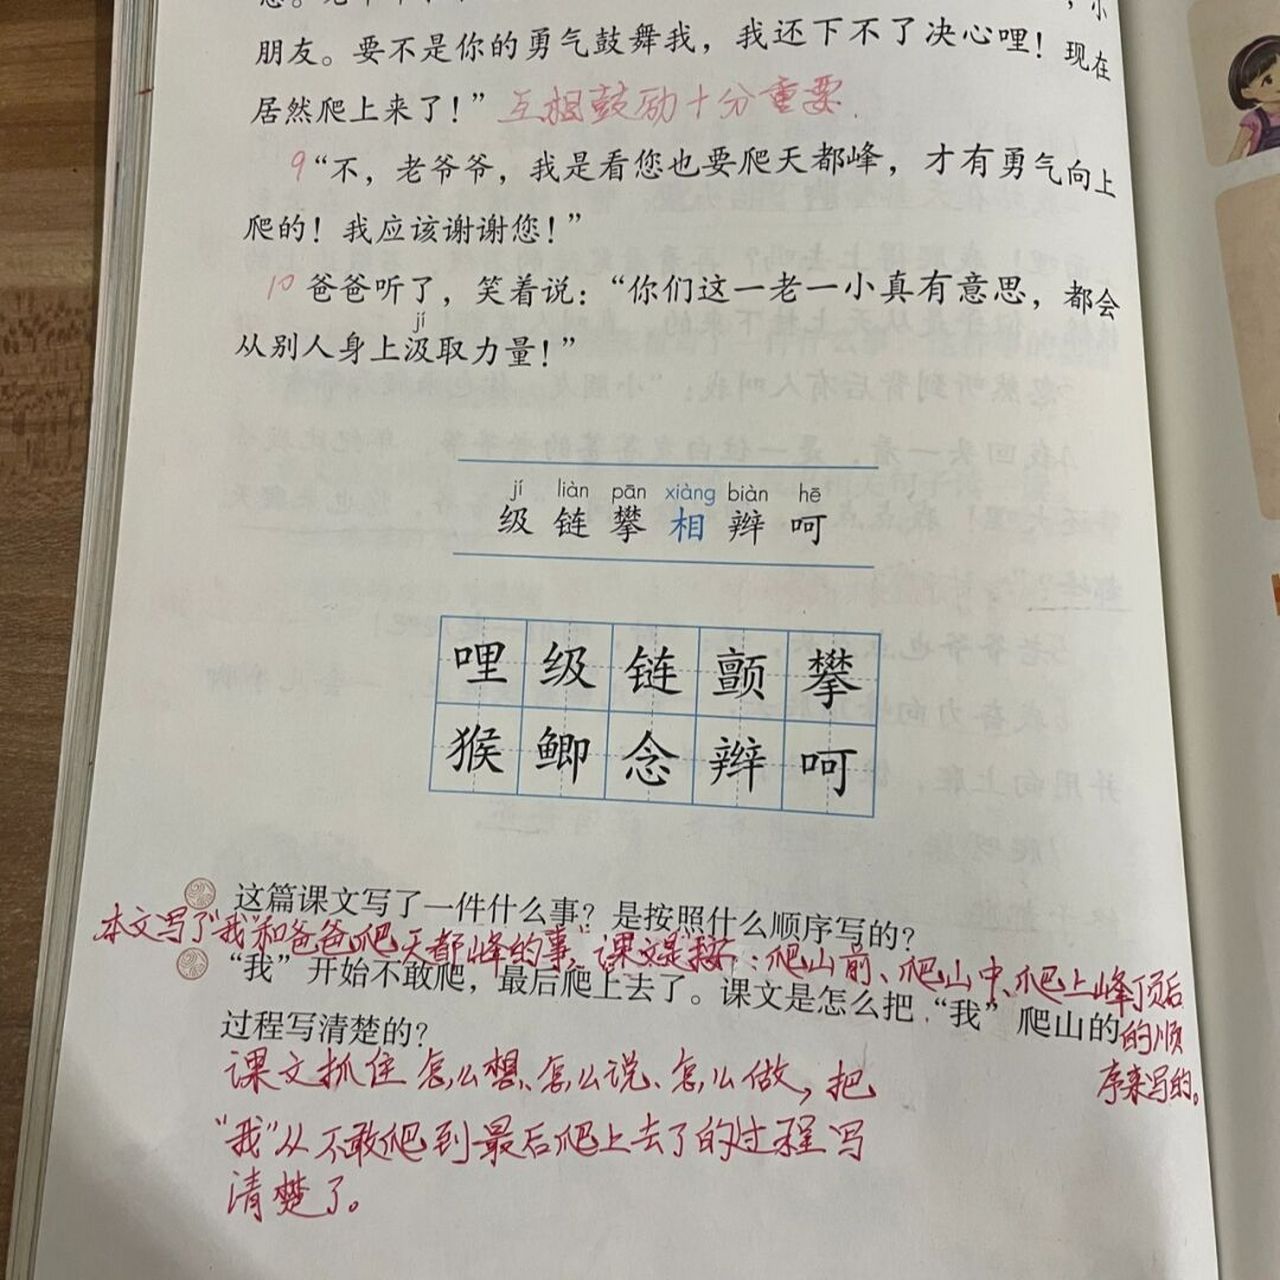 ，小
朋友。要不是你的勇气鼓舞我，我还下不了决心哩！现在
居然爬上来了！” 互相鼓励十分重要.
9 “不，老爷爷，我是看您也要爬天都峰，才有勇气向上
爬的！我应该谢谢您！”
10 爸爸听了，笑着说：“你们这一老一小真有意思，都会
jí
从别人身上汲取力量！”
jí liàn pān xiàng biàn hē
级 链 攀 相 辫 呵
哩 级 链 颤 攀
猴 鲫 念 辫 呵
这篇课文写了一件什么事？是按照什么顺序写的？
本文写了“我”和爸爸爬天都峰的事，课文是按：爬山前、爬山中、爬上峰顶后
“我”开始不敢爬，最后爬上去了。课文是怎么把“我”爬山的
的顺
过程写清楚的？
序来写的。
课文抓住怎么想、怎么说、怎么做，把
“我”从不敢爬到最后爬上去了的过程写
清楚了。